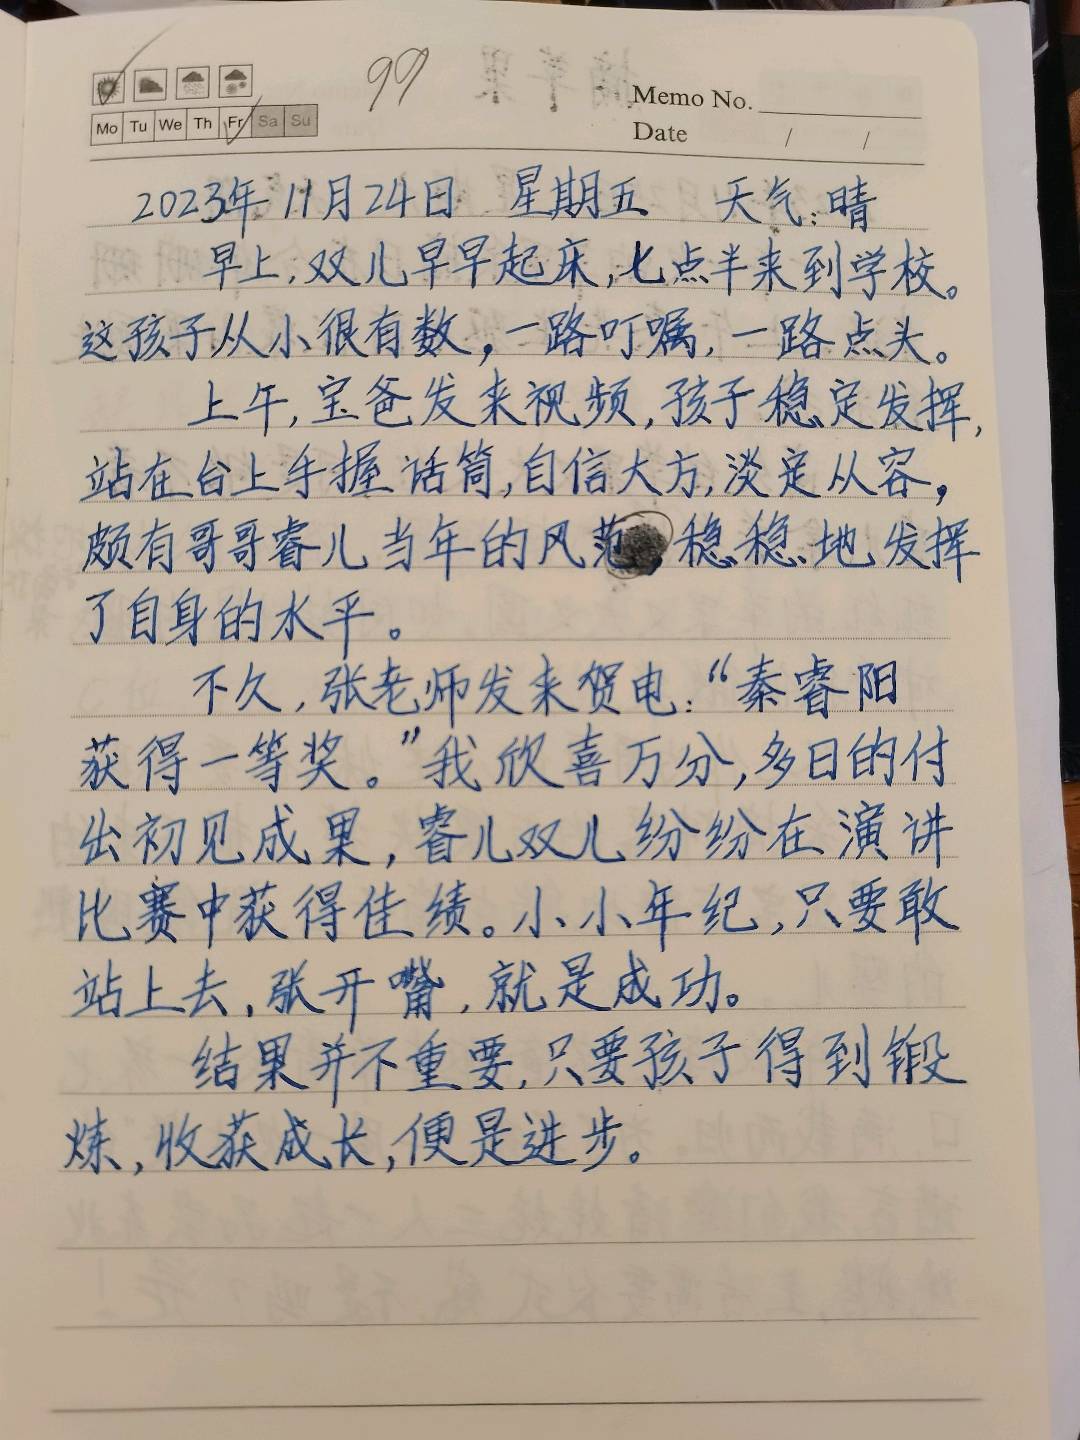 99
Memo No.
Mo Tu We Th Fr Sa Su
Date / /
2023年11月24日 星期五 天气:晴
早上,双儿早早起床,七点半来到学校。
这孩子从小很有数,一路叮嘱,一路点头。
上午,宝爸发来视频,孩子稳定发挥,
站在台上手握话筒,自信大方,淡定从容,
颇有哥哥睿儿当年的风范,稳稳地发挥
了自身的水平。
不久,张老师发来贺电:“秦睿阳
获得一等奖。”我欣喜万分,多日的付
出初见成果,睿儿双儿纷纷在演讲
比赛中获得佳绩。小小年纪,只要敢
站上去,张开嘴,就是成功。
结果并不重要,只要孩子得到锻
炼,收获成长,便是进步。